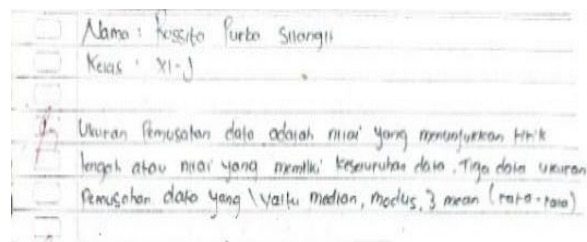 Nama : Rossita Purba Silangit
Kelas : XI-J
Ukuran Pemusatan data adalah nilai yang menunjukkan titik
tengah atau nilai yang memiliki keseruruhan data. Tiga data ukuran
Pemusatan data yang \ yaitu median, modus, 3 mean (rata-rata)